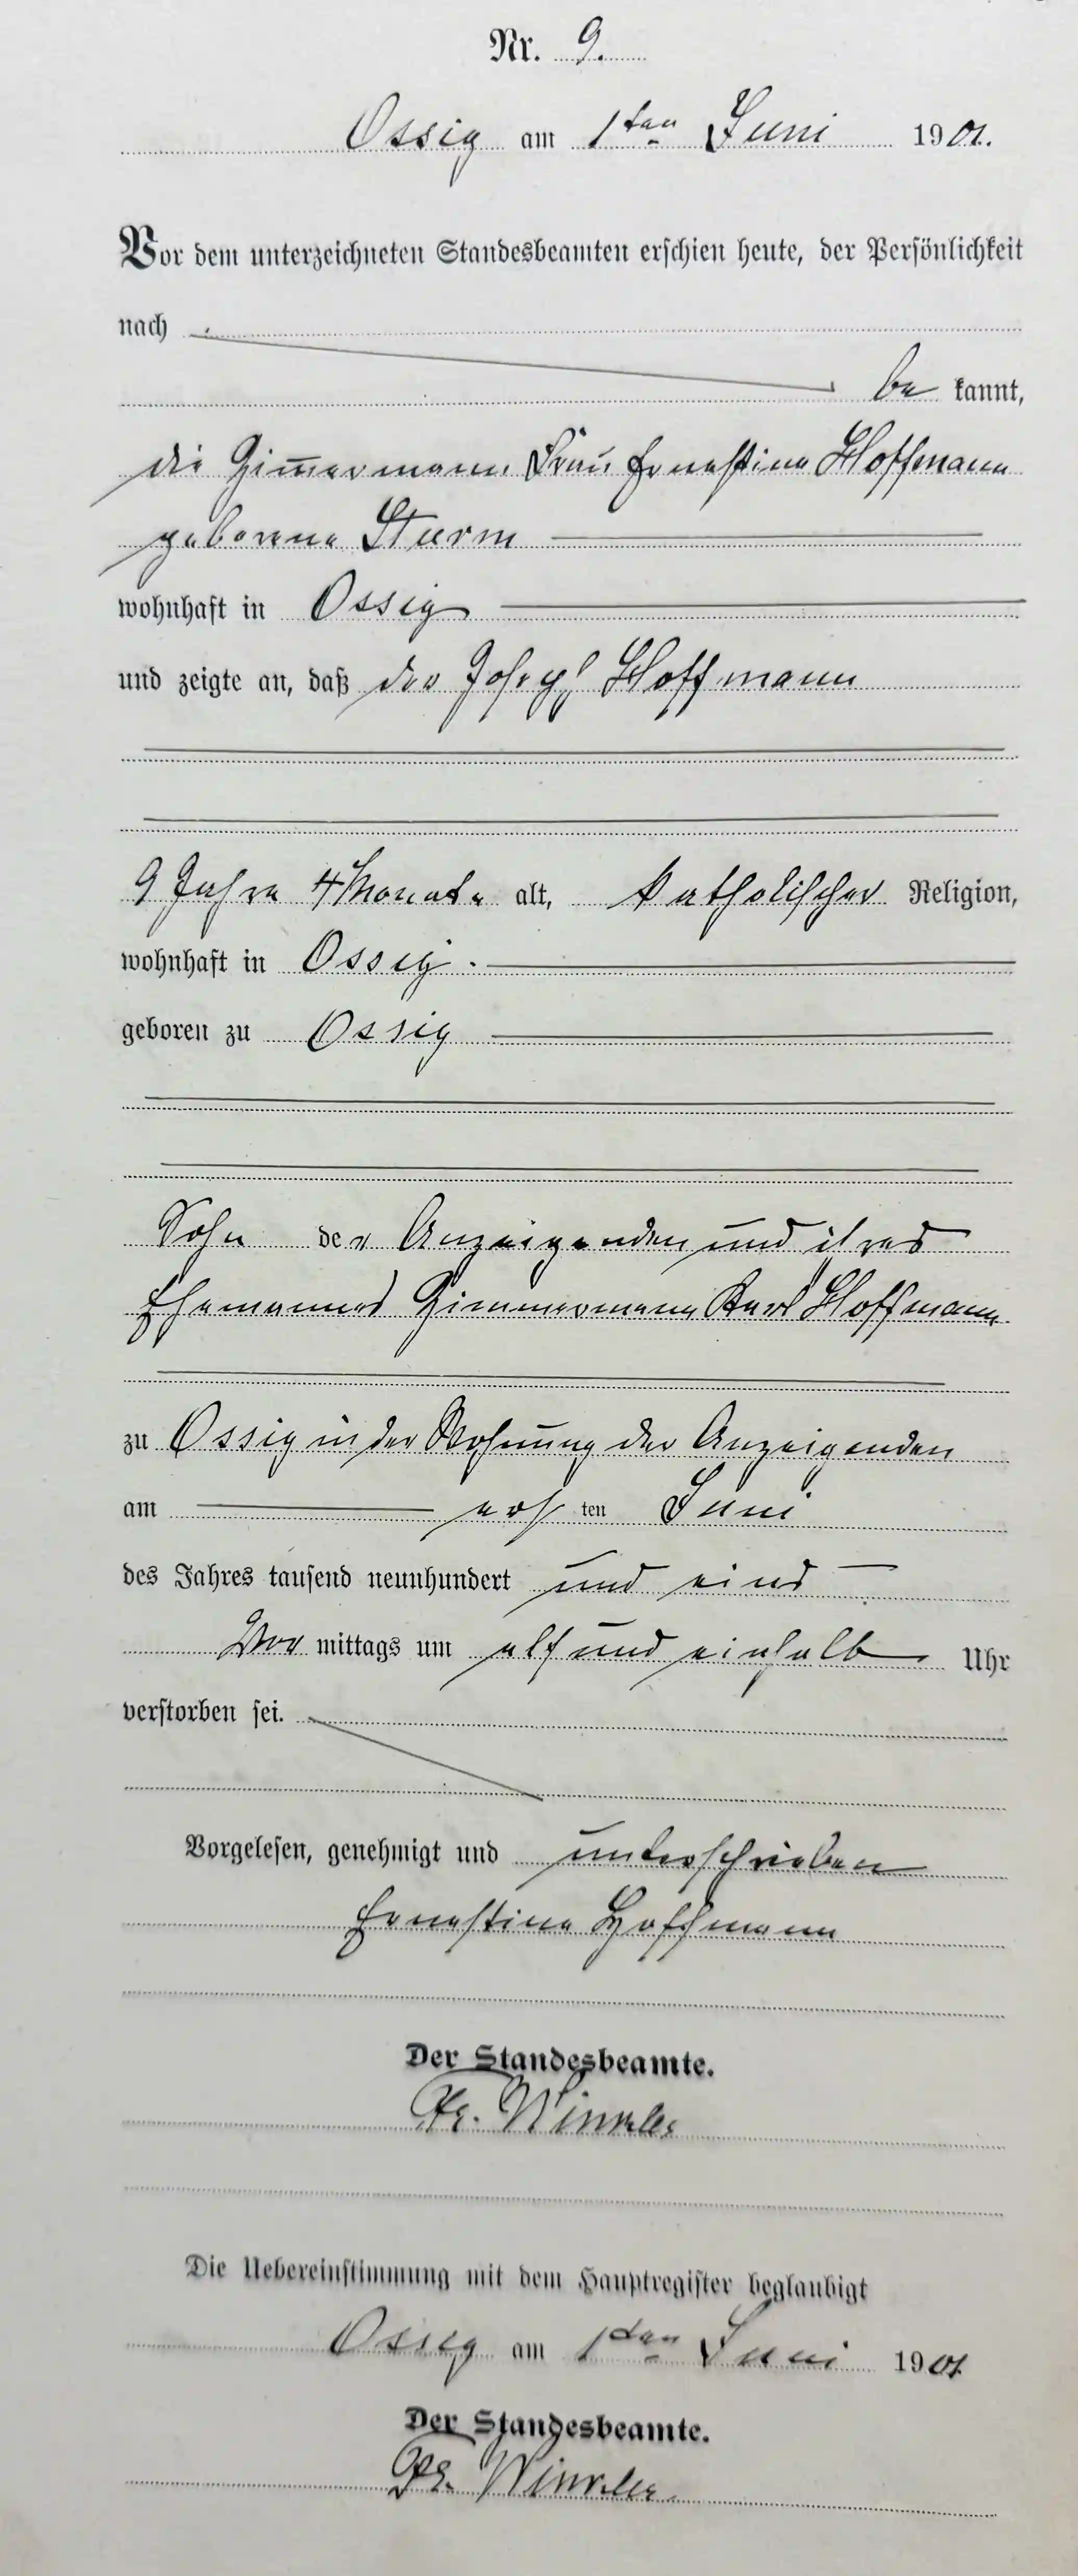 Nr. 9.
Ossig am 1ten Juni 1901.
Vor dem unterzeichneten Standesbeamten erschien heute, der Persönlichkeit
nach
be kannt,
die Zim̄ermann Frau Ernestine Hoffmann
geborene Sturm
wohnhaft in Ossig
und zeigte an, daß der Joseph Hoffmann
9 Jahre 4 Monate alt, katholischer Religion,
wohnhaft in Ossig.
geboren zu Ossig
Sohn der Anzeigenden und ihres
Ehemannes Zimmermann Karl Hoffmann
zu Ossig in der Wohnung der Anzeigenden
am ersten Juni
des Jahres tausend neunhundert und eins
Vor mittags um elf und einhalb Uhr
verstorben sei.
Vorgelesen, genehmigt und unterschrieben
Ernestine Hoffmann
Der Standesbeamte.
Winkler
Die Uebereinstimmung mit dem Hauptregister beglaubigt
Ossig am 1ten Juni 1901
Der Standesbeamte.
Winkler.